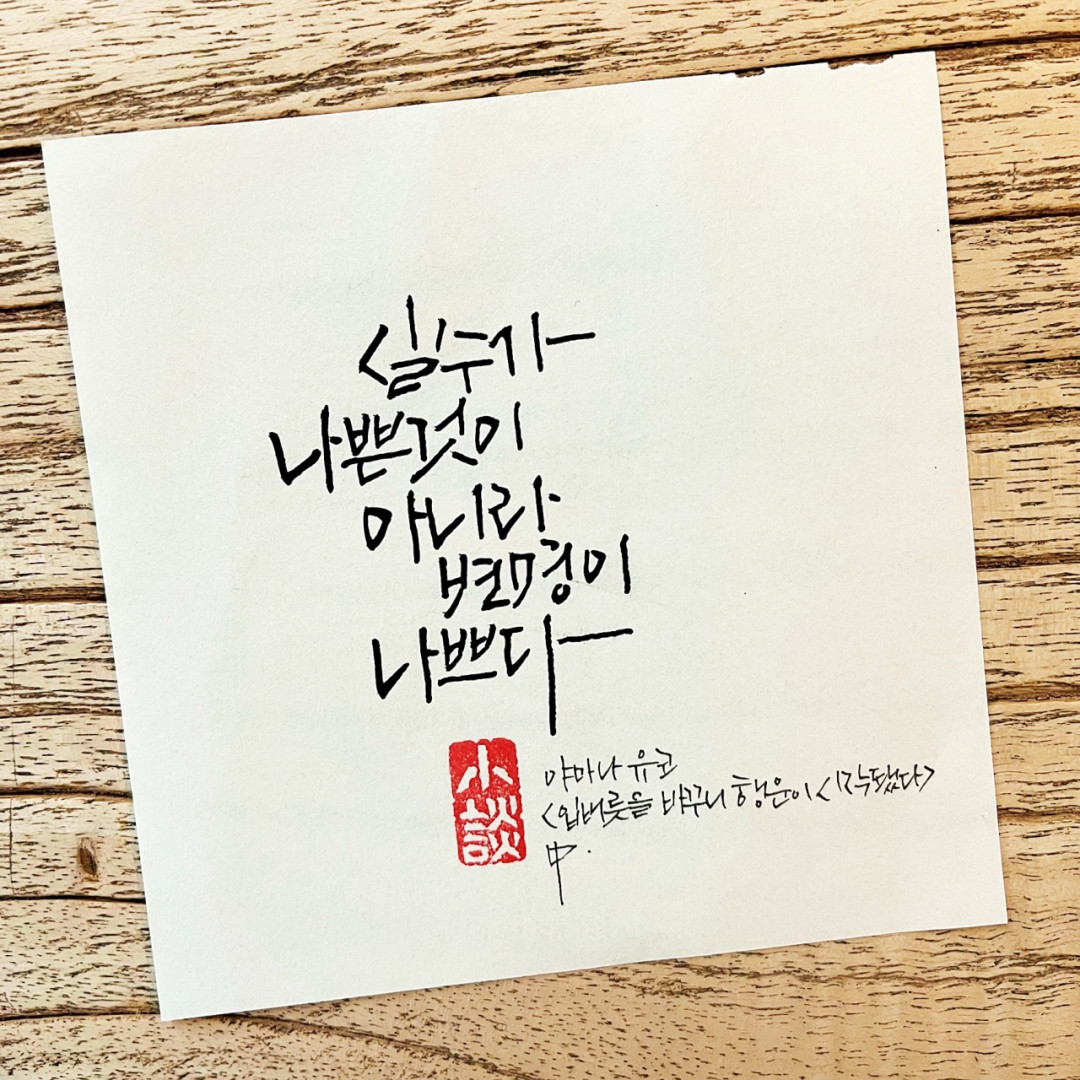 실수가
나쁜것이
아니라
변명이
나쁘다
小談
야마나 유코
<입버릇을 바꾸니 행운이 시작됐다>
中.